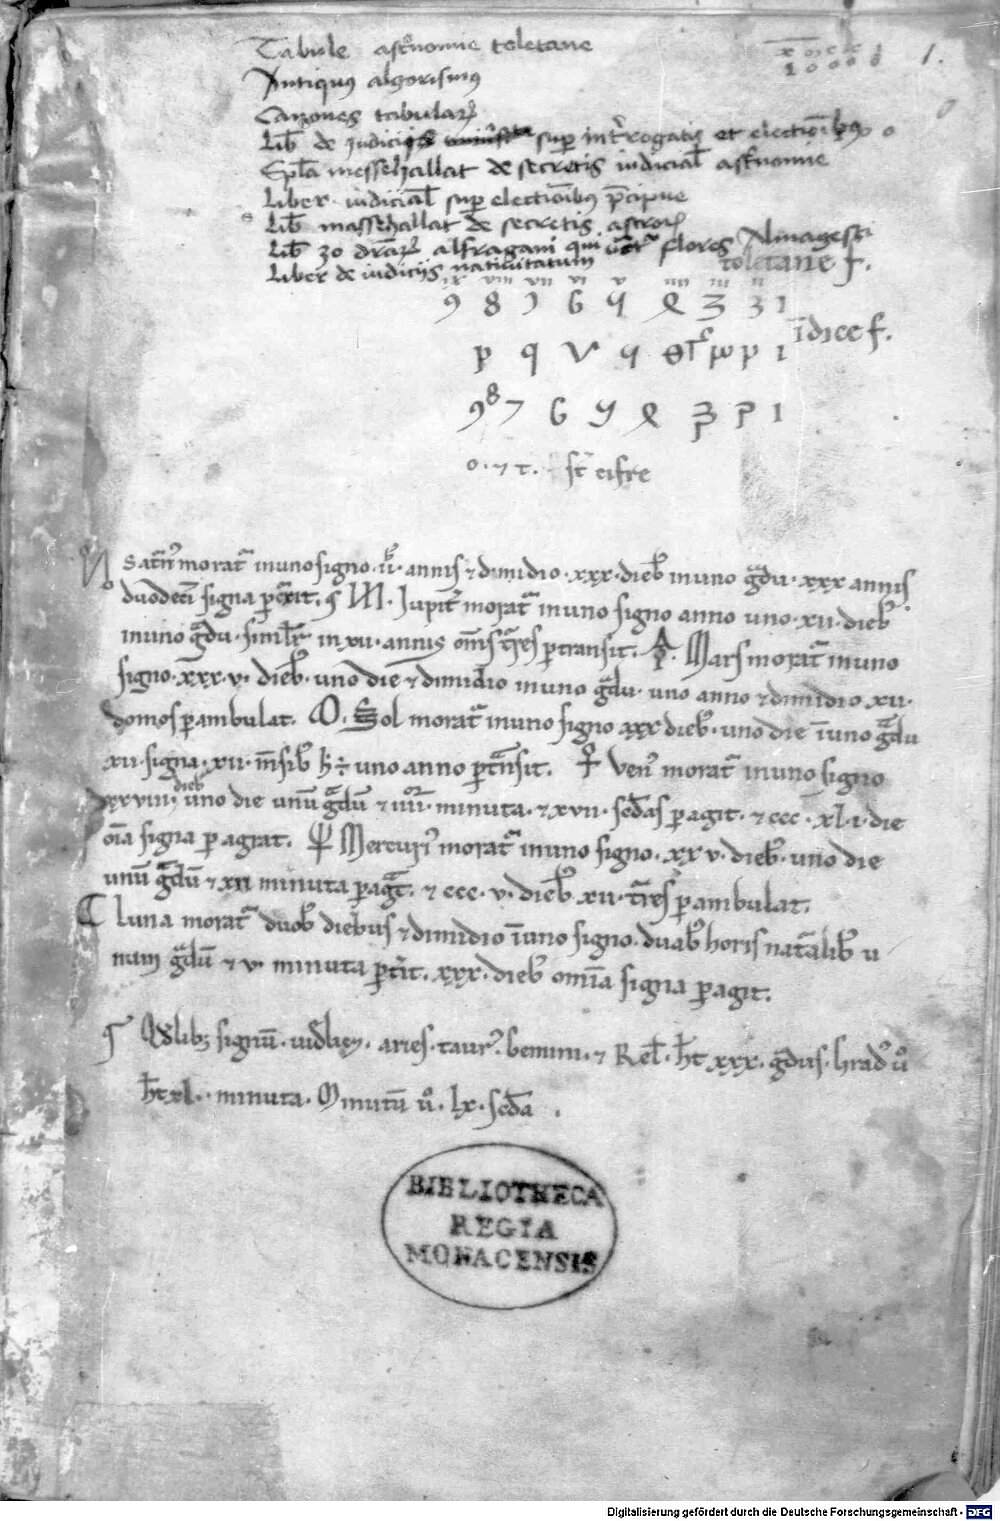 Tabule astronomie toletane
Antiquus algorismus
Canones tabularꝝ
Lib̄ de iudiciis sup int̄rogatis et election̄ibus
Ep̄la messehallat de secretis iudicial̄ astronomie
Liber iudicial̄ sup election̄ibus p̄cipue
Lib̄ massehallat de secretis astrorꝝ
Lib̄ 30 dr̄arꝝ alfragani qui flores Almagesti
Liber de iudiciis nativitatum toletane f.
ix viii vii vi v iiii iii ii
9 8 7 6 5 4 3 2 1
indice f.
9 8 7 6 5 4 3 2 1
o. ⁊ τ. st̄ cifre
Saturn⁹ morat̄ in uno signo .ii. annis ⁊ dimidio .xxx. dieb⁹ in uno ḡdu .xxx annis
duodeci signa p̄exit. Iupit̄ morat̄ in uno signo anno uno .xii. dieb⁹
in uno ḡdu . simil̄r in xii. annis om̄s p̄transit. Mars morat̄ in uno
signo .xxx.v. dieb⁹. uno die ⁊ dimidio in uno ḡdu . uno anno ⁊ dimidio xii.
domos p̄ambulat. Sol morat̄ in uno signo xxx dieb⁹. uno die ī uno ḡdu
xii. signa . xii. m̄sib⁹ h̄ ÷ uno anno p̄t̄nsit. Ven⁹ morat̄ in uno signo
xxviii. dieb⁹ uno die unū ḡdū ⁊ iiii. minuta . ⁊ xvii. sc̄das p̄agit . ⁊ ccc . xl.i. die
oīa signa p̄agrat. Mercuri⁹ morat̄ in uno signo . xxv. dieb⁹. uno die
unū ḡdū ⁊ xii minuta p̄aḡt. ⁊ ccc. v. dieb⁹ xii. p̄ambulat.
Luna morat̄ duob⁹ diebus ⁊ dimidio ī uno signo . duab⁹ horis nat̄alib⁹ u
num ḡdū ⁊ v. minuta p̄t̄it. xxx. dieb⁹ omīa signa p̄agit.
Qḋlibꝫ signū . vid̄licꝫ . aries . taur⁹. Gemini . ⁊ Rel̄ . h̄t xxx. ḡdus . Grad⁹ ů
h̄t xl. minuta . Minutū ů . lx. sc̄da .
BIBLIOTHECA
REGIA
MONACENSIS
Digitalisierung gefördert durch die Deutsche Forschungsgemeinschaft - DFG